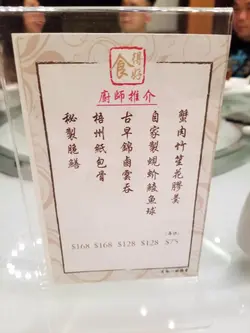 食得好
廚師推介
蟹肉竹笙花膠羹
(每位)
自家製蜆蚧鯪魚球
$128
古早錦鹵雲吞
$128
梧州紙包骨
$168
秘製脆鱔
$168